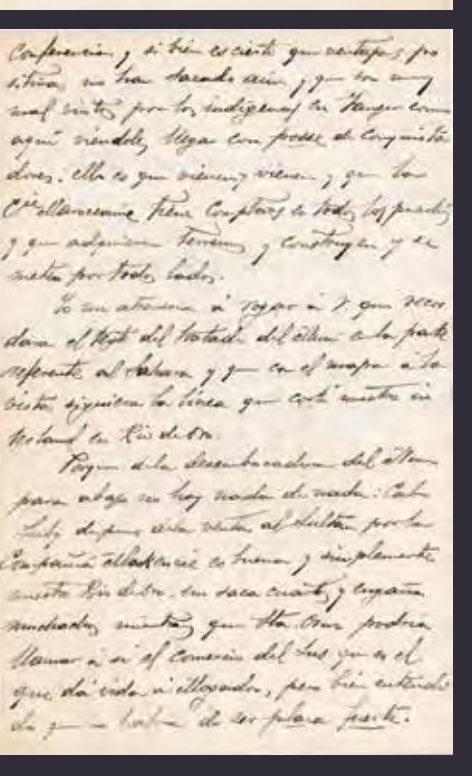 Conferencia, y si bien es cierto que ventajas po
sitivas no han sacado aún, y que son muy
mal vistos por los indígenas en Tanger como
aquí viéndoles llegar con posse de conquista
dores, ello es que vienen y vienen, y que la
Cie Marocaine tiene comptoirs en todos los puertos
y que adquieren terrenos y construyen y se
meten por todos lados.
Yo me atrevería à rogar à V que recor
dara el text del tratado del en la parte
referente al Sahara y que con el mapa à la
vista siguiera la línea que corta nuestro
en Rio de Oro.
Porque de la desembocadura del
para abajo no hay nada de nada: Cabo
Juby despues de la venta al Sultan por la
Compañía es buena y simplemente
nuestro Rio de Oro, un saca cuartos y engaña
muchachos, mientras que Sta Cruz podria
llamar à si el comercio del Sus que es el
que dá vida à Mogador, pero bien entendi
do que habria de ser plaza fuerte.